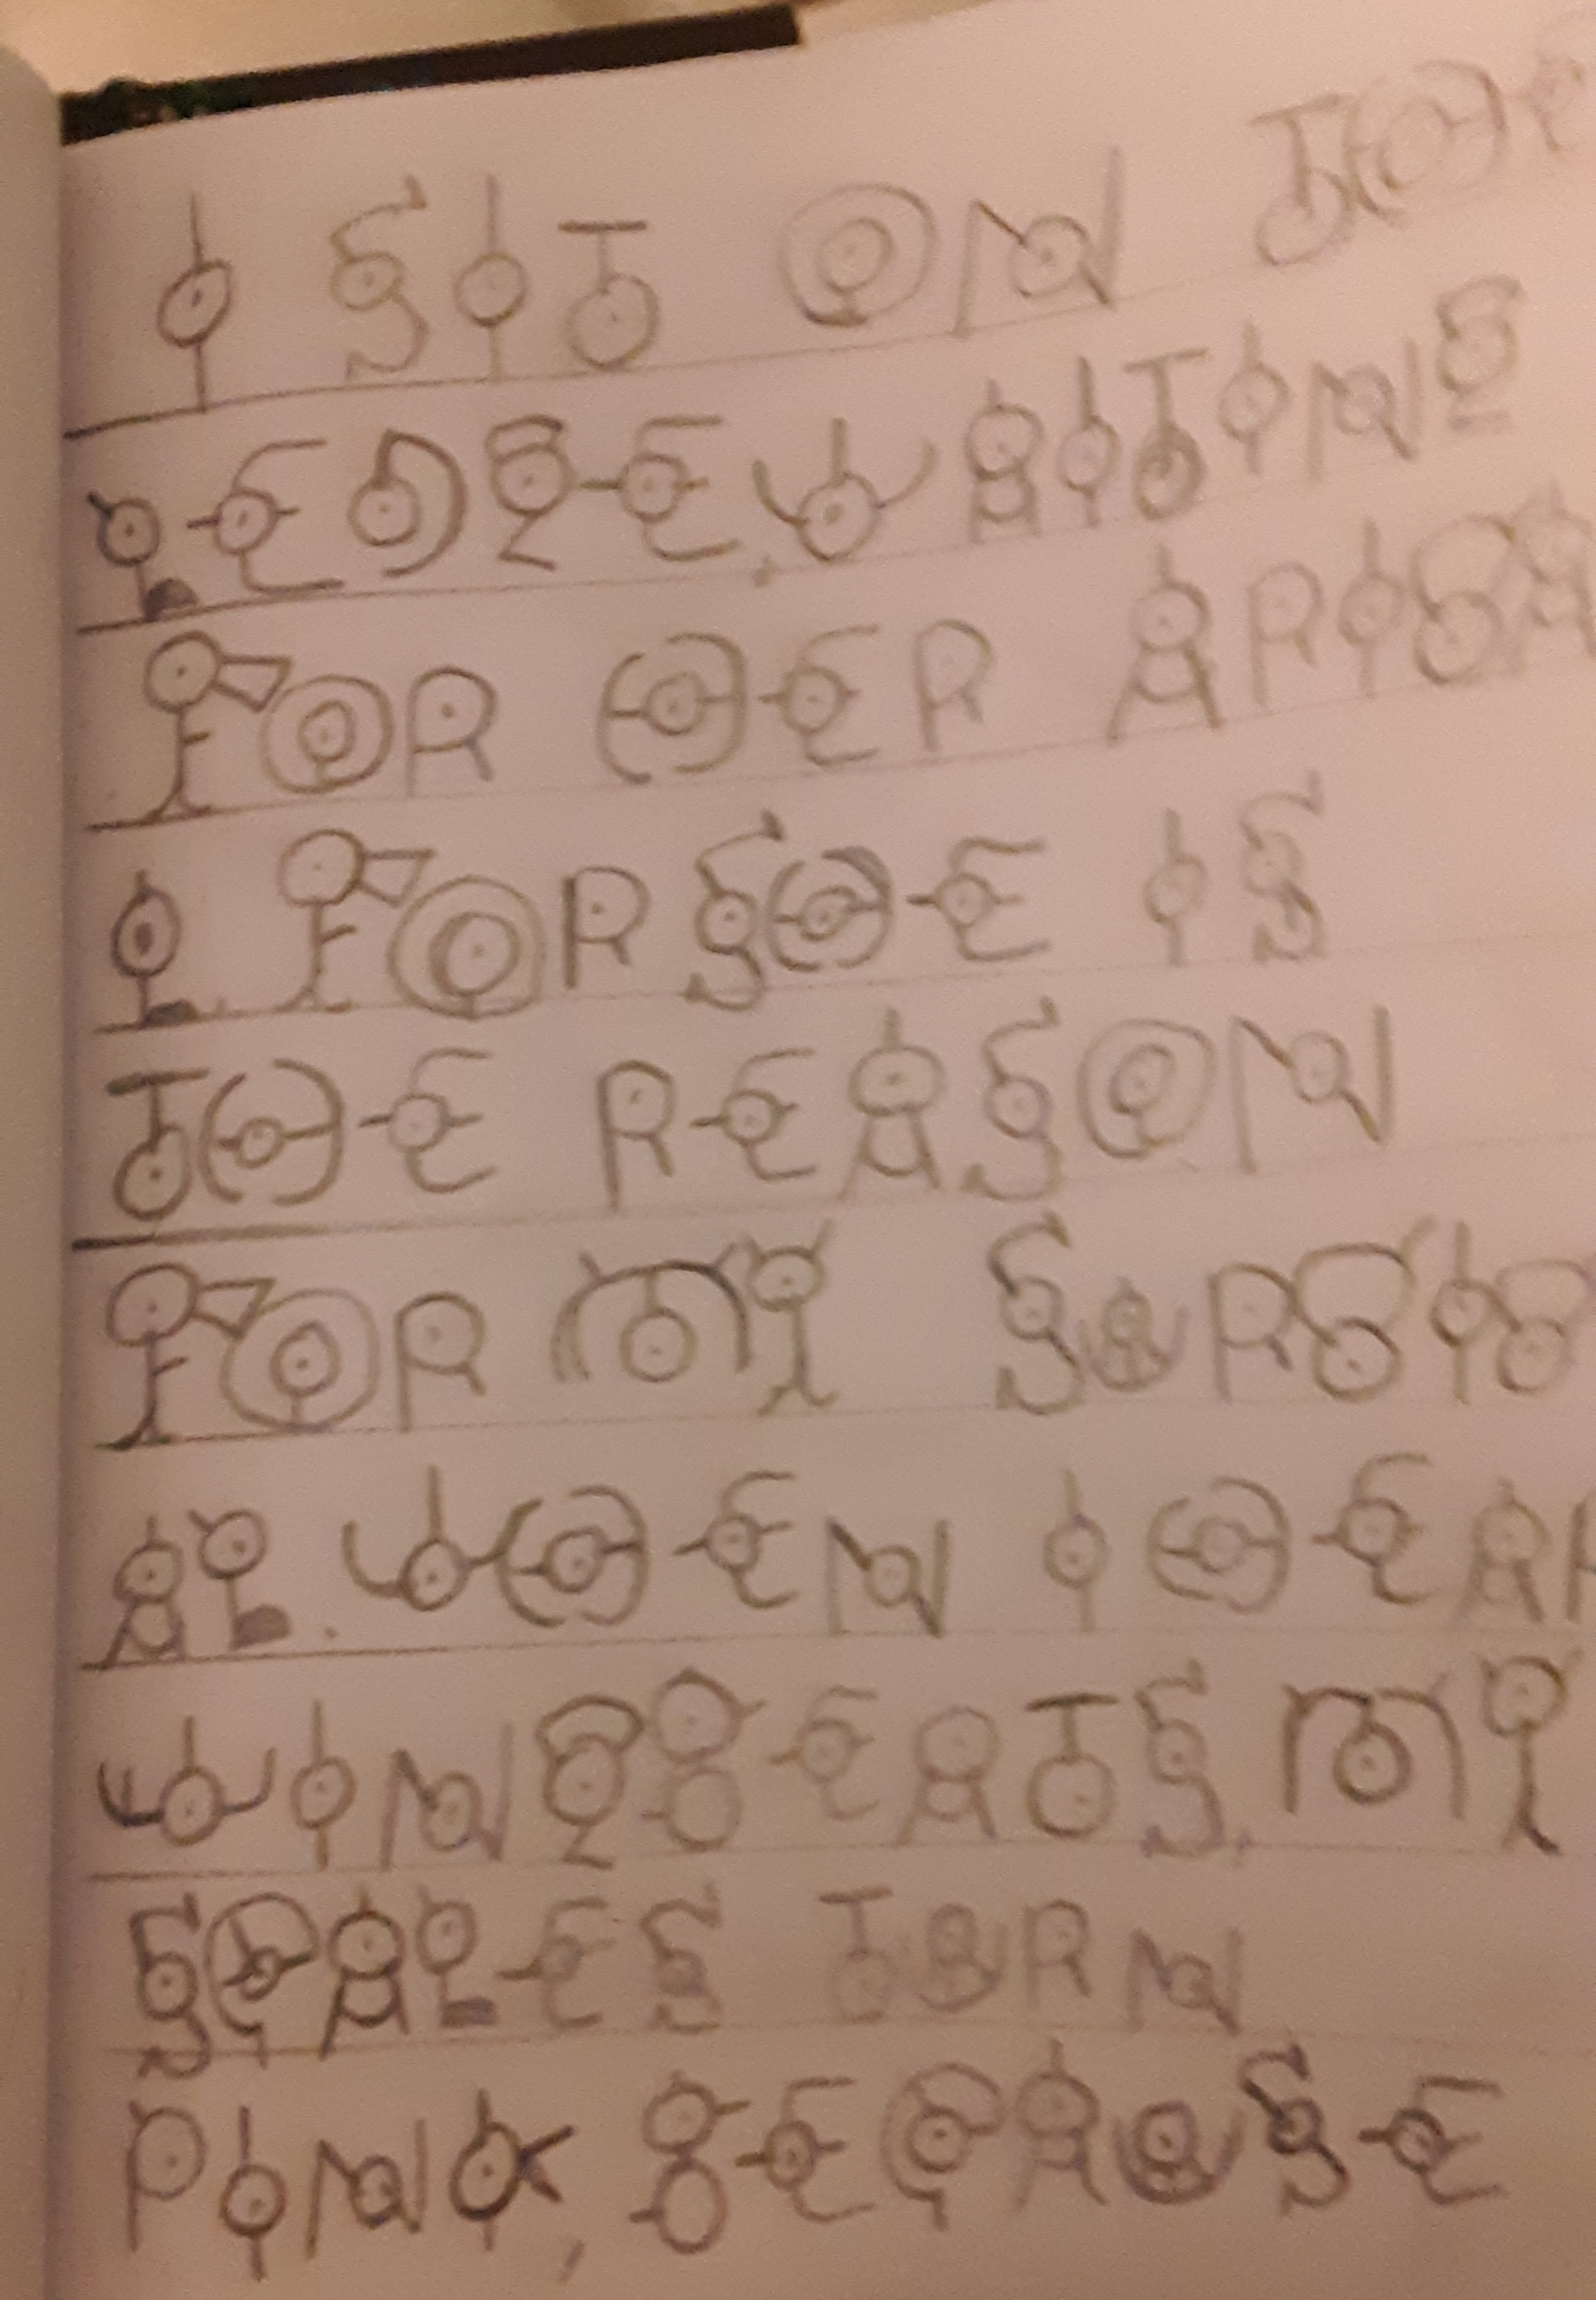 I SIT ON THE
LEDGE. WAITING
FOR HER ARIVA
L. FORSHE IS
THE REASON
FOR MY SURVIV
AL. WHEN I HEAR
WINGBEATS, MY
SCALES TURN
PINK, BECAUSE